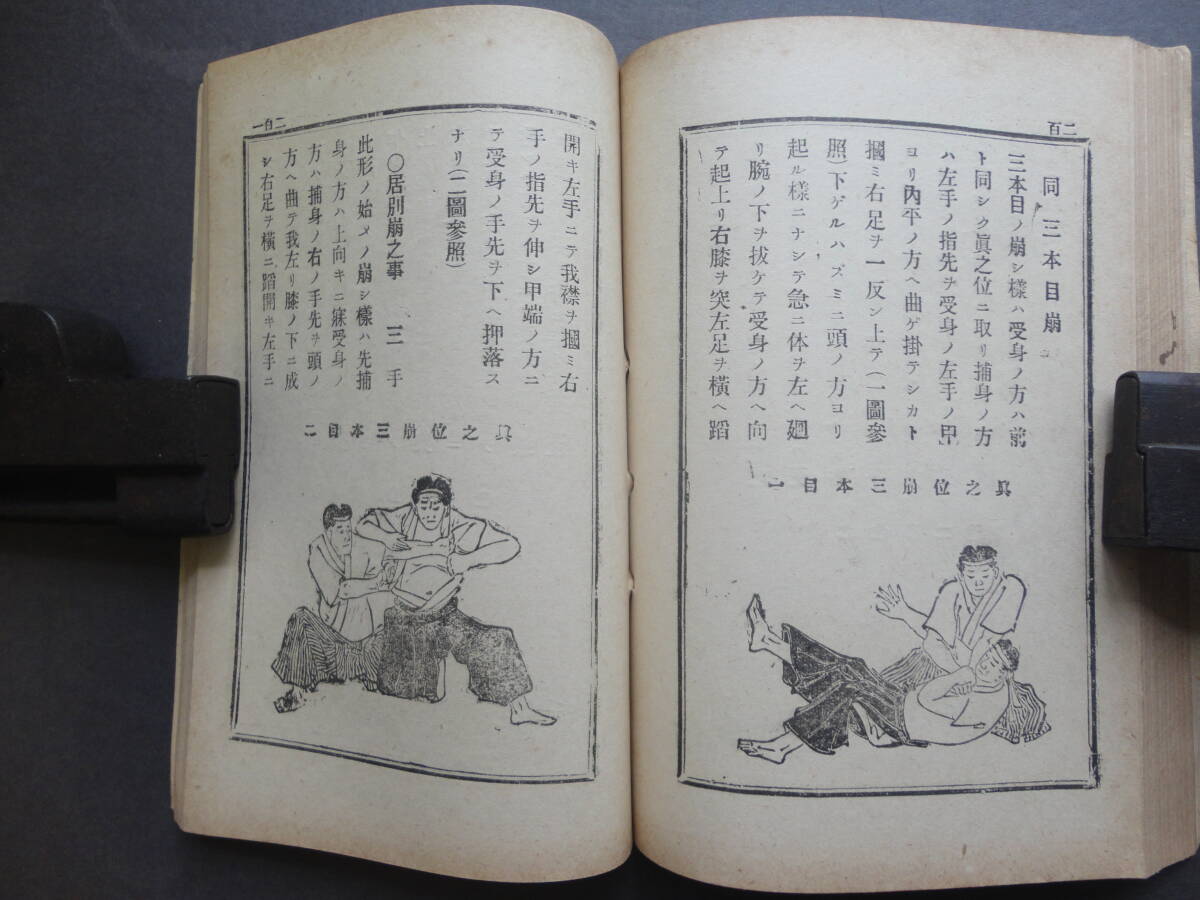 二百
同三本目崩
三本目ノ崩シ樣ハ受身ノ方ハ前
ト同シク眞之位ニ取リ捕身ノ方
ハ左手ノ指先ヲ受身ノ左手ノ甲
ヨリ內平ノ方ヘ曲ゲ掛テシカト
摑ミ右足ヲ一反シ上テ(一圖參
照)下ゲルハズミニ頭ノ方ヨリ
起ル樣ニナシテ急ニ体ヲ左ヘ廻
リ腕ノ下ヲ拔ケテ受身ノ方ヘ向
テ起上リ右膝ヲ突左足ヲ橫ヘ蹈
眞之位崩三本目一
二百一
開キ左手ニテ我襟ヲ摑ミ右
手ノ指先ヲ伸シ甲端ノ方ニ
テ受身ノ手先ヲ下ヘ押落ス
ナリ(二圖參照)
〇居別崩之事 三手
此形ノ始メノ崩シ樣ハ先捕
身ノ方ハ上向キニ寐受身ノ
方ハ捕身ノ右ノ手先ヲ頭ノ
方ヘ曲テ我左リ膝ノ下ニ成
シ右足ヲ橫ニ蹈開キ左手ニ
眞之位崩三本目二